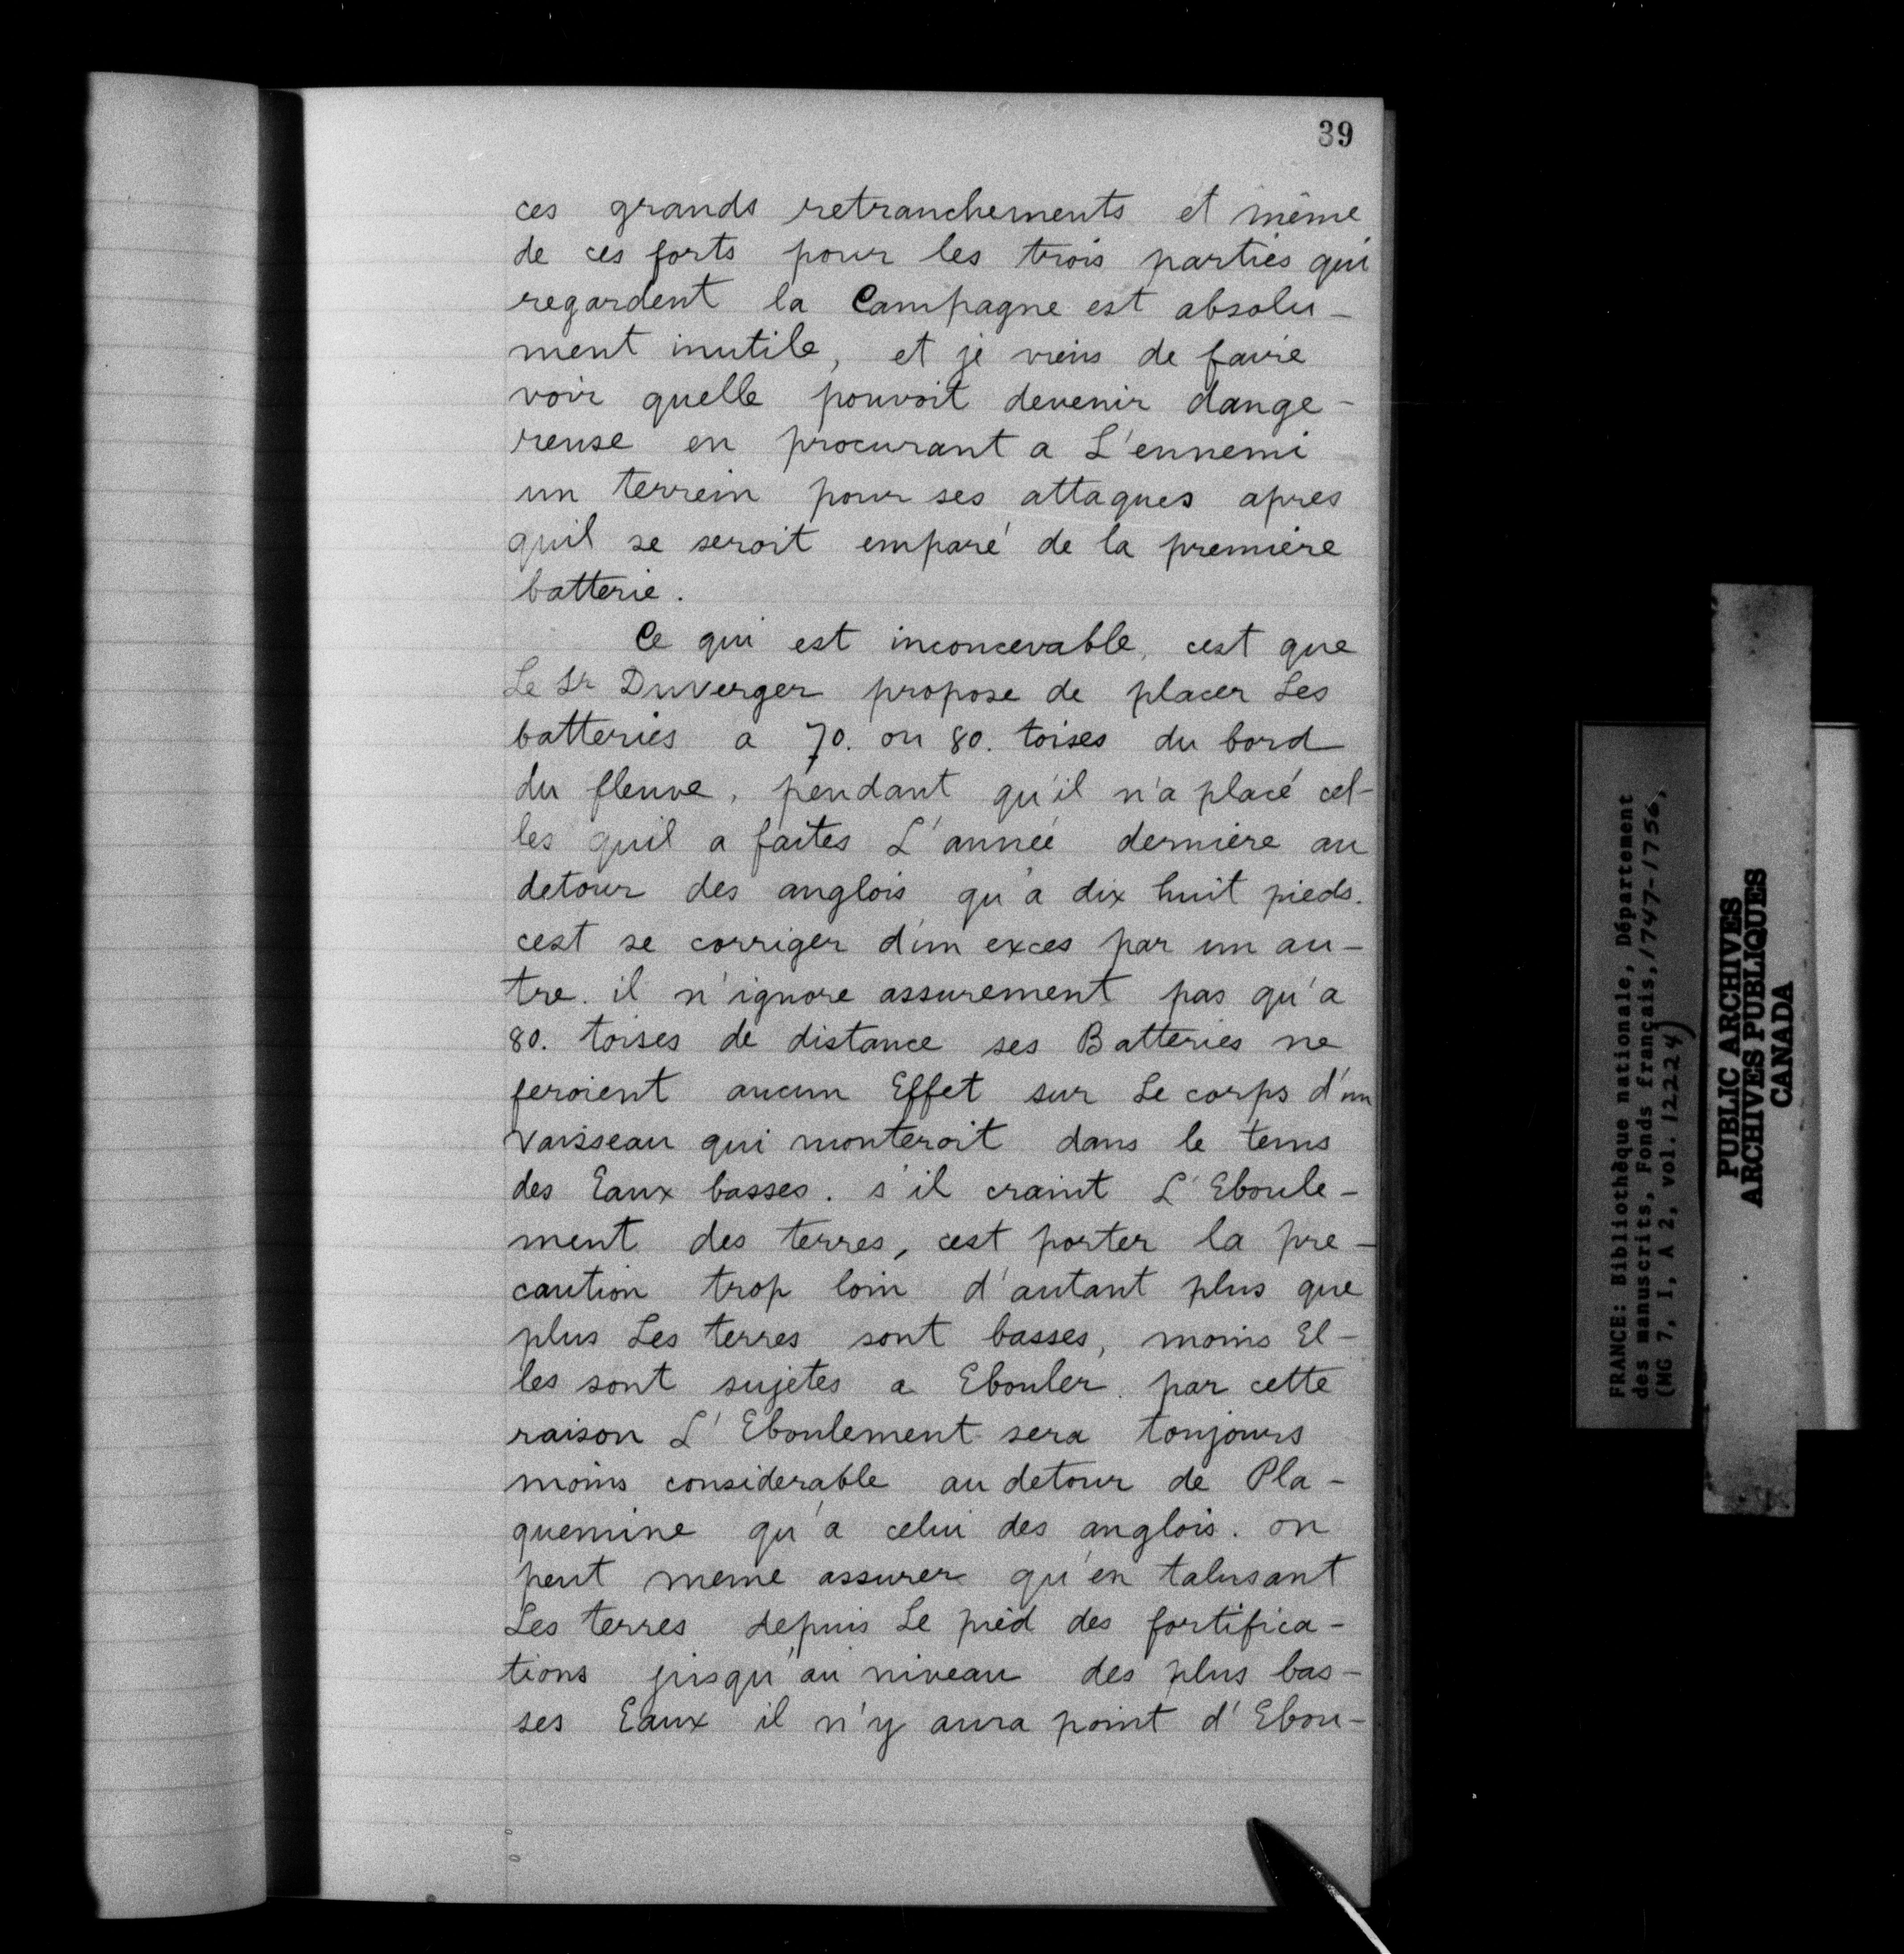 39
ces grands retranchements et même
de ces forts pour les trois parties qui
regardent la Campagne est absolu-
ment inutile, et je viens de faire
voir quelle pouvoit devenir dange-
reuse en procurant a L'ennemi
un terrein pour ses attaques apres
quil se seroit emparé de la premiere
batterie.
Ce qui est inconcevable, cest que
Le Sr Duverger propose de placer Les
batteries a 70. ou 80. toises du bord
du fleuve, pendant qu'il n'a placé cel-
les quil a faites L'année derniere au
detour des anglois qu'a dix huit pieds.
cest se corriger d'un exces par un au-
tre. il n'ignore assurement pas qu'a
80. toises de distance ses Batteries ne
feroient aucun Effet sur Le corps d'un
vaisseau qui monteroit dans le tems
des Eaux basses. s'il craint L'Eboule-
ment des terres, cest porter la pre-
caution trop loin d'autant plus que
plus Les terres sont basses, moins El-
les sont sujetes a Ebouler. par cette
raison L'Eboulement sera toujours
moins considerable au detour de Pla-
quemine qu'a celui des anglois. on
peut meme assurer qu'en talusant
Les terres depuis Le pied des fortifica-
tions jusqu'au niveau des plus bas-
ses Eaux il n'y aura point d'Ebou-
FRANCE: Bibliothèque nationale, Département
des manuscrits, Fonds français, 1747-1756,
(MG 7, I, A 2, vol. 12224)
PUBLIC ARCHIVES
ARCHIVES PUBLIQUES
CANADA